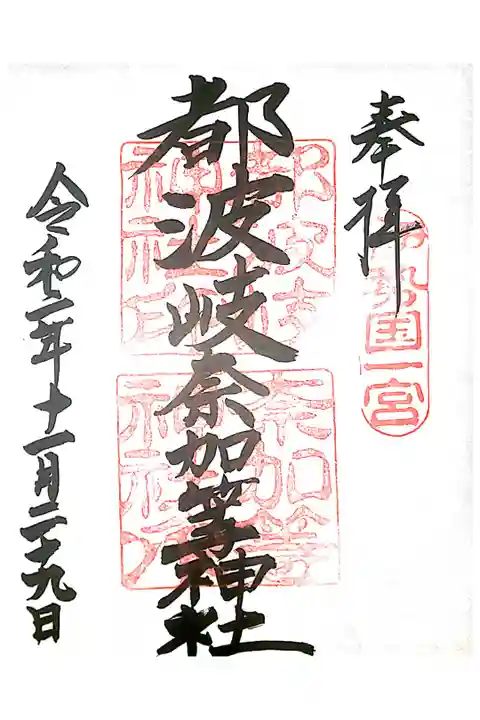 奉拝
伊勢国一宮
都波岐奈加等神社
都波岐神社印
奈加等神社印
令和二年十一月二十九日